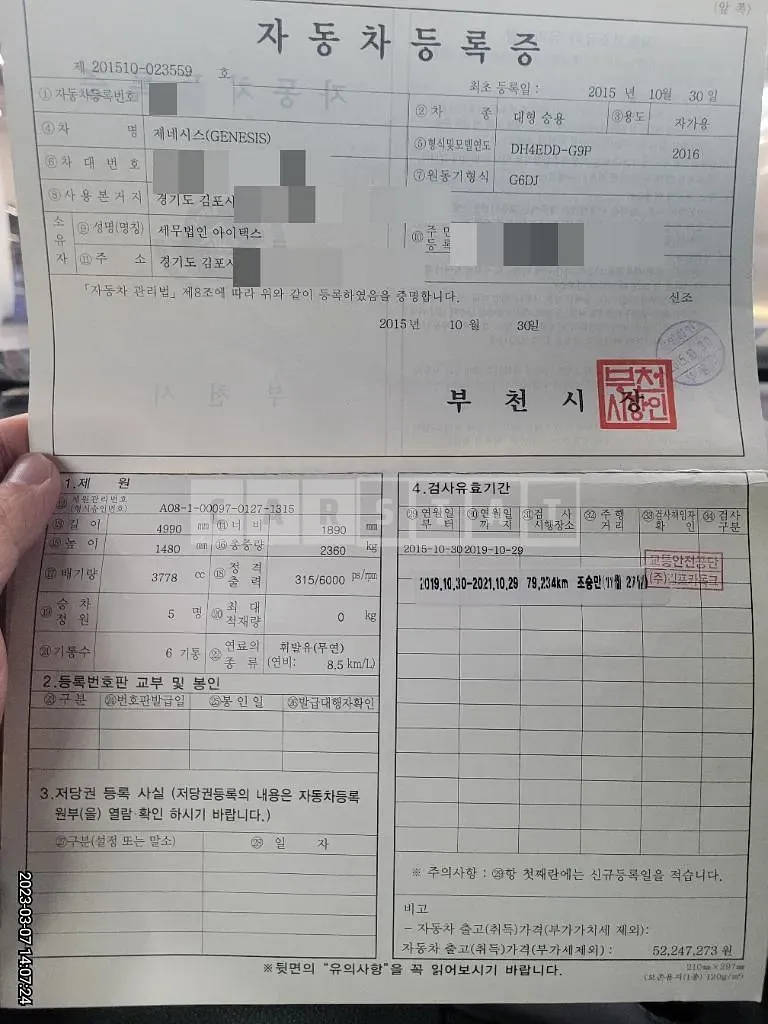 (앞 쪽)
자동차등록증
제 201510-023559 호
최초 등록일 : 2015 년 10월 30 일
①자동차등록번호 ②차 종 대형 승용 ③용도 자가용
④차 명 제네시스(GENESIS) ⑤형식및모델연도 DH4EDD-G9P 2016
⑥차 대 번 호 ⑦원동기형식 G6DJ
⑧사 용 본 거 지 경기도 김포시
소유자 ⑨성명(명칭) 세무법인 아이택스 ⑩주민 등록
⑪주 소 경기도 김포시
「자동차 관리법」제8조에 따라 위와 같이 등록하였음을 증명합니다.
신조
2015년 10 월 30일
부 천 시 장
부천시장인
1.제 원
⑫제원관리번호 (형식승인번호) A08-1-00097-0127-1315
⑬길 이 4990 mm ⑭너 비 1890 mm
⑮높 이 1480 mm ⑯총중량 2360 kg
⑰배기량 3778 cc ⑱정격 출력 315/6000 ps/rpm
⑲승차 정원 5 명 ⑳최 대 적재량 0 kg
㉑기통수 6 기통 ㉒연료의 종 류 휘발유(무연) (연비: 8.5 km/L)
2.등록번호판 교부 및 봉인
㉓구 분 ㉔번호판발급일 ㉕봉 인 일 ㉖발급대행자확인
3.저당권 등록 사실 (저당권등록의 내용은 자동차등록
원부(을) 열람·확인 하시기 바랍니다.)
㉗구분(설정 또는 말소) ㉘일 자
4.검사유효기간
㉙연월일 부터 ㉚연월일 까지 ㉛검 사 시행장소 ㉜주 행 거리 ㉝검사책임자 확 인 ㉞검사 구분
2015-10-30 2019-10-29
교통안전공단
2019.10.30-2021.10.29 79,234km 조승만(11월 27일)
※ 주의사항 : ㉙항 첫째란에는 신규등록일을 적습니다.
비고
- 자동차 출고(취득)가격(부가가치세 제외):
자동차 출고(취득)가격(부가세제외) : 52,247,273 원
※뒷면의 "유의사항"을 꼭 읽어보시기 바랍니다.
210㎜×297㎜
(보존용지(1종) 120g/㎡)
CARSTAT
2023-03-07 14:07:24